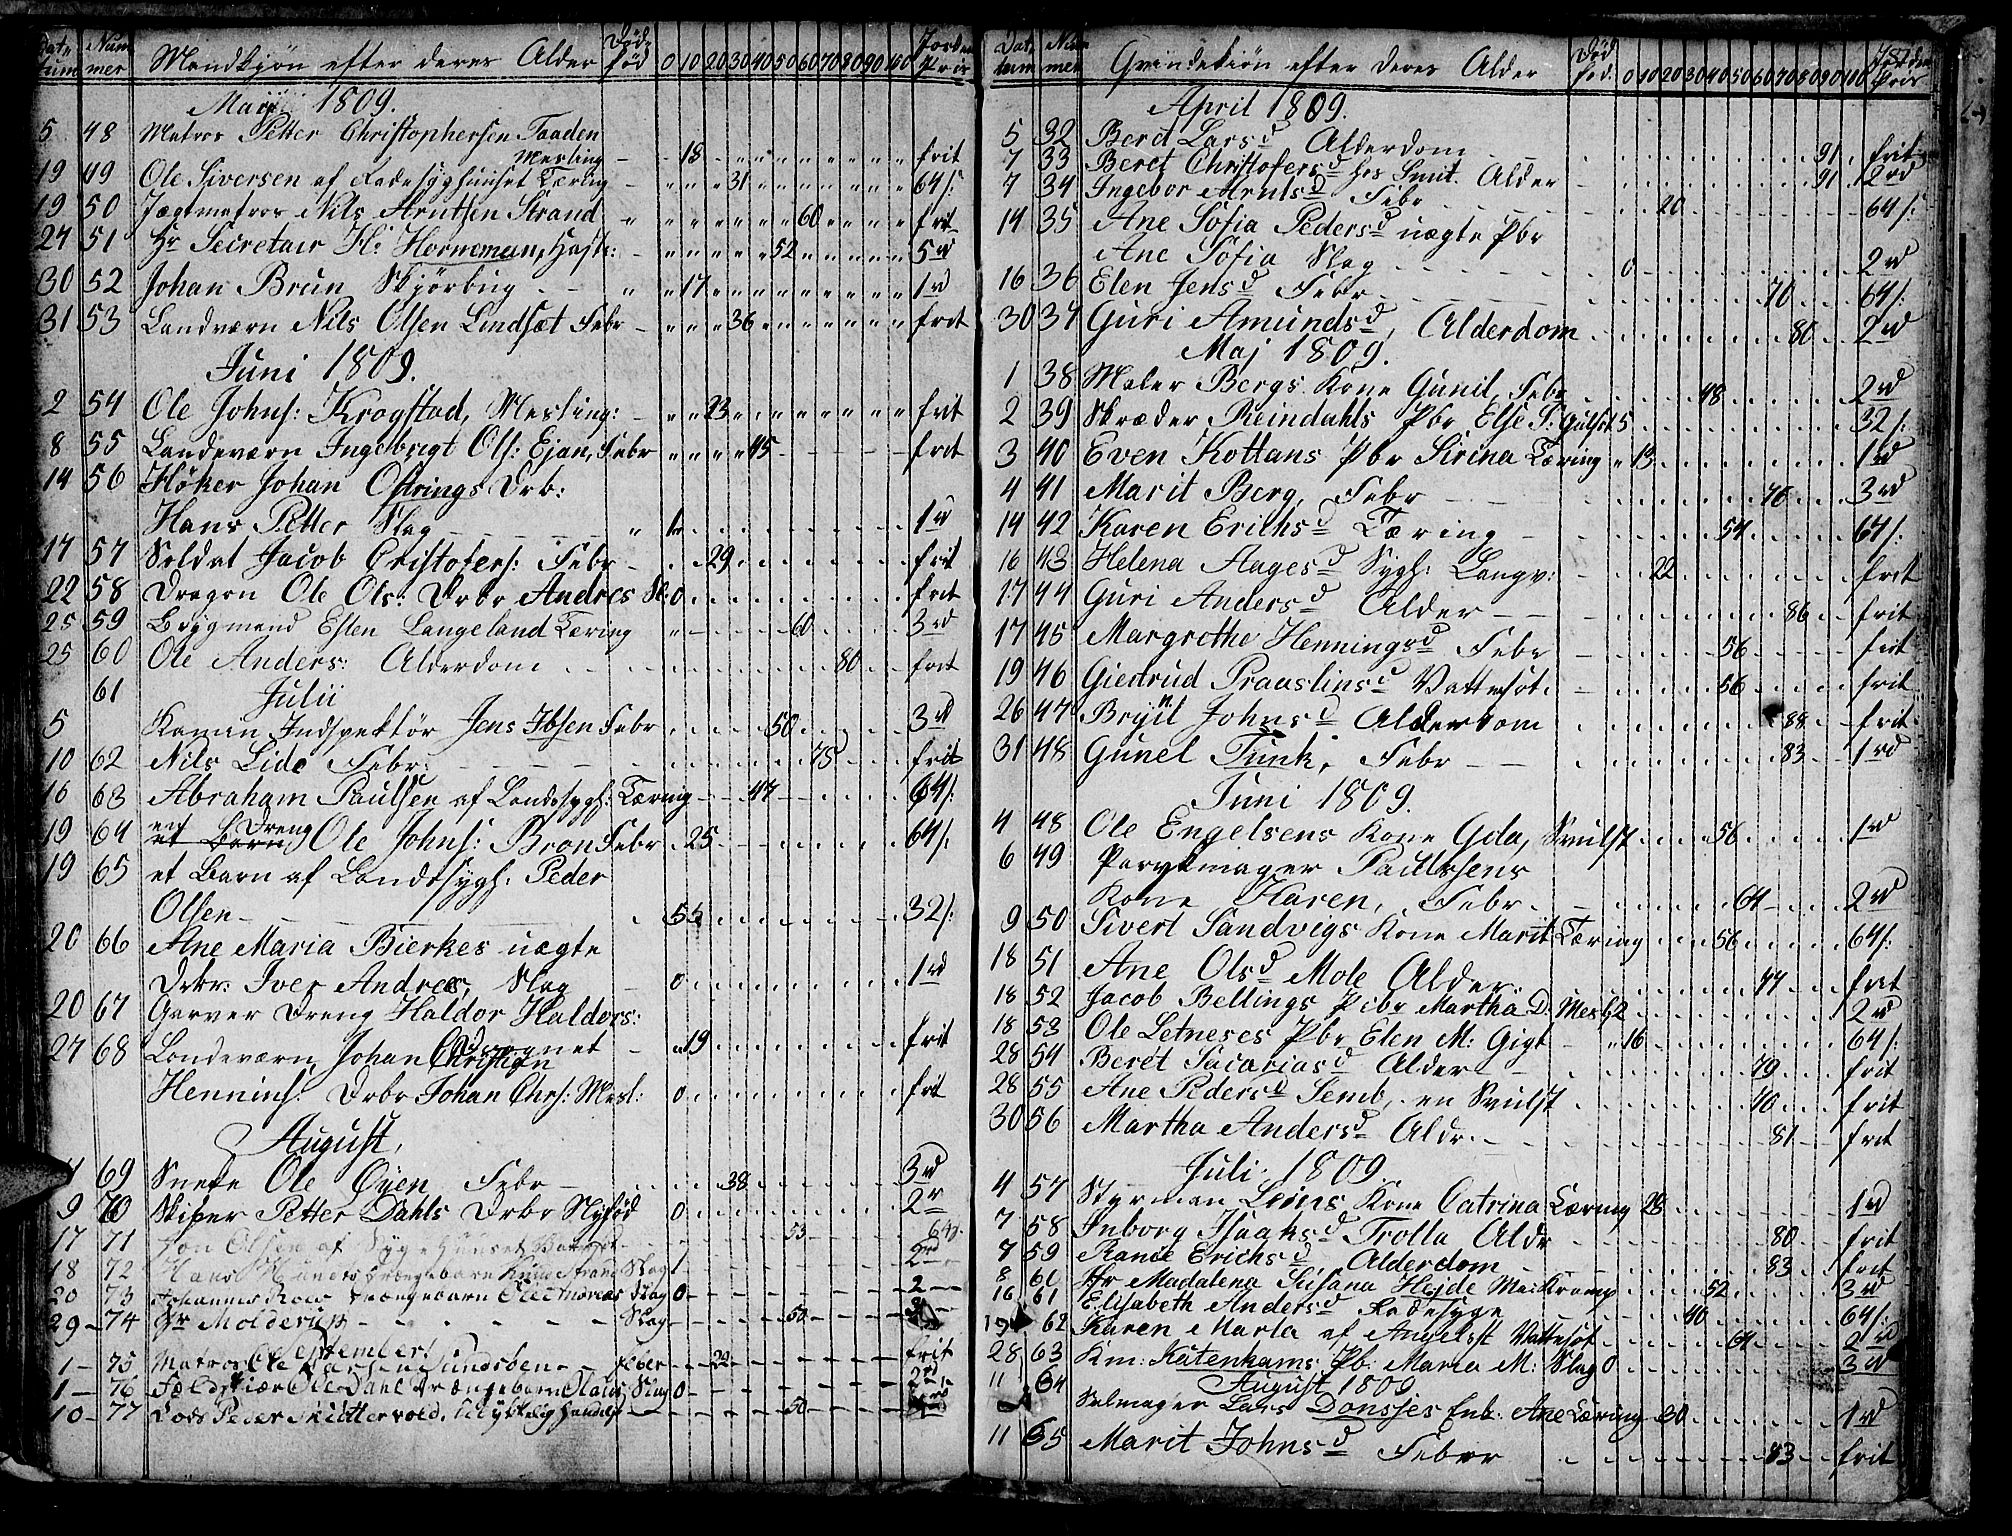 Dat- Num Mandkjøn efter deres Alder Død- Jorden
tum mer fød 0 10 20 30 40 50 60 70 80 90 100 Priis
Maji 1809.
5 48 Matros Petter Christophersen Taaden
Mesling - 18 frit
19 49 Ole Siversen af Radesyghuuset Tæring 31 64 s:
19 50 Jægtmatros Nils Arntsen Strand 60 frit
24 51 Hr Secretair H: Horneman, Hoste: 52 5 rd
30 52 Johan Brun Skjørbug 17 1 rd
31 53 Landværn Nils Olsen Lindsæt Febr 36 frit
Juni 1809.
2 54 Ole Johns: Krogstad, Mesling: 23 frit
8 55 Landeværn Ingebrigt Ols: Ejan, Febr 45 frit
14 56 Høker Johan Ostrings Drb:
Hans Petter Slag 1 rd
17 57 Soldat Jacob Cristofers: Febr 29 frit
22 58 Dragon Ole Ols: Drbr Andres Sl: 0 frit
25 59 Bygmand Esten Langeland Tæring 60 3 rd
25 60 Ole Anders: Alderdom 80 frit
61 Julii
5 Kamin Indspektør Jens Ibsen Febr 50 3 rd
10 62 Nils Lide Febr: 75 frit
16 63 Abraham Paulsen af Landssygh: Tæring 47 64 s:
19 64 en Dreng Ole Johns: Bron Febr 25 64 s:
19 65 et Barn af Landssygh: Peder
Olsen 5 32 s:
20 66 Ane Maria Bierkes uægte
Drbr: Iver Andreas, Slag 0 1 rd
20 67 Garver Dreng Haldor Haldors:
Druognet 19 frit
27 68 Landeværn Johan Christian
Hennins: Drbr Johan Chrs: Mesl: 0 frit
August,
69 Snete Ole Øyen Febr 38 3 rd
9 70 Skiper Petter Dahls Drbr Nyfød 0 2 r
17 71 Jon Olsen af Sygehuuset 53 64 s
18 72 Hans Drængebarn Knud Strand Slag 1
20 73 Johannes Roes Drængebarn Ole Andreas Slag 0 2
29 74 Hr Molderup Slag 50
September
1 75 Matros Ole Larsen Sundsøen Feber 22 frit
1 76 Ole Dahl Drængebarn Olaus, Slag 0 2
10 77 Lods Peder ulykkelig Hændelse 50
Dat- Num Qvindekiøn efter deres Alder Død Jorden
tum mer fød. 0 10 20 30 40 50 60 70 80 90 100 Priis
April 1809.
5 32 Berit Lars d Alderdom 91 frit
7 33 Beret Christofers d hos Smit. Alder 91 2 rd
7 34 Ingebor Arnts d Febr 20 64 s:
14 35 Ane Sofia Peders d uægte Pbr
Ane Sofia Slag 0 2 rd
16 36 Elen Jens d Febr 70 64 s:
30 37 Guri Amunds d, Alderdom 80 2 rd
Maj 1809.
1 38 Maler Bergs Kone Gunil, Febr 48 2 rd
2 39 Skræder Reindahls Pbr Else S: Gulsot 5 32 s:
3 40 Even Kottans Pbr Sirina Tæring 13 1 rd
4 41 Marit Berg, Febr 76 3 rd
14 42 Karen Erichs d Tæring 54 64 s:
16 43 Helena Aages d Sygh: Langv: 22 frit
17 44 Guri Anders d Alder 86 frit
17 45 Margrethe Hennings d Febr 56 frit
19 46 Giertrud Praustins d Vattersot 56 frit
26 47 Brynil Johns d Alderdom 88 frit
31 48 Gunel Tunk, Febr 83 1 rd
Juni 1809.
4 48 Ole Engelsens Kone Gda, Svulst 56 1 rd
6 49 Parykmager Paulssens
Kone Karen, Febr 64 2 rd
9 50 Sivert Sandvigs Kone Marit Tæring 56 64 s:
18 51 Ane Ols d Mole Alder 77 frit
18 52 Jacob Bellings Pebr Martha D: Mesl 2 2 rd
18 53 Ole Letneses Pbr Elen M: Gigt 16 64 s:
28 54 Beret Sacarias d Alder 79 frit
28 55 Ane Peders d Semb, en Svulst 70 frit
30 56 Martha Anders d Aldr. 81 frit
Juli 1809.
4 57 Styrman Leins Kone Catrina Tæring 28 1 rd
7 58 Inborg Isaaks d Trolla Aldr 80 frit
8 59 Rande Erichs d, Alderdom 83 frit
8 60 Fr Madalena Susana Hejde Mav:Kramp 52 3 rd
16 61 Elisabeth Anders d Radesyge 40 64 s:
19 62 Karen Marta af Angelset Vattersot 64 2 rd
28 63 Km: Katenkams Pb: Maria M: Slag 0 3 rd
August 1809
11 64 Salmager Lars Donsjes Enk: Ane Tæring 30 1 rd
11 65 Marit Johns d Feber 83 frit